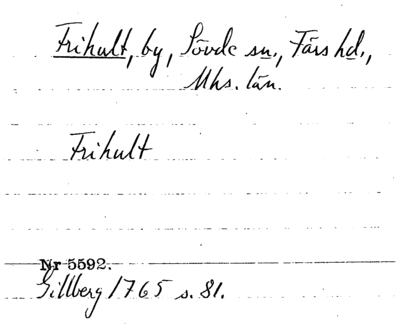 Frihult, by, Sövde sn., Färs hd.,
Mhs. län.
Frihult
Nr 5592.
Gillberg 1765 s. 81.